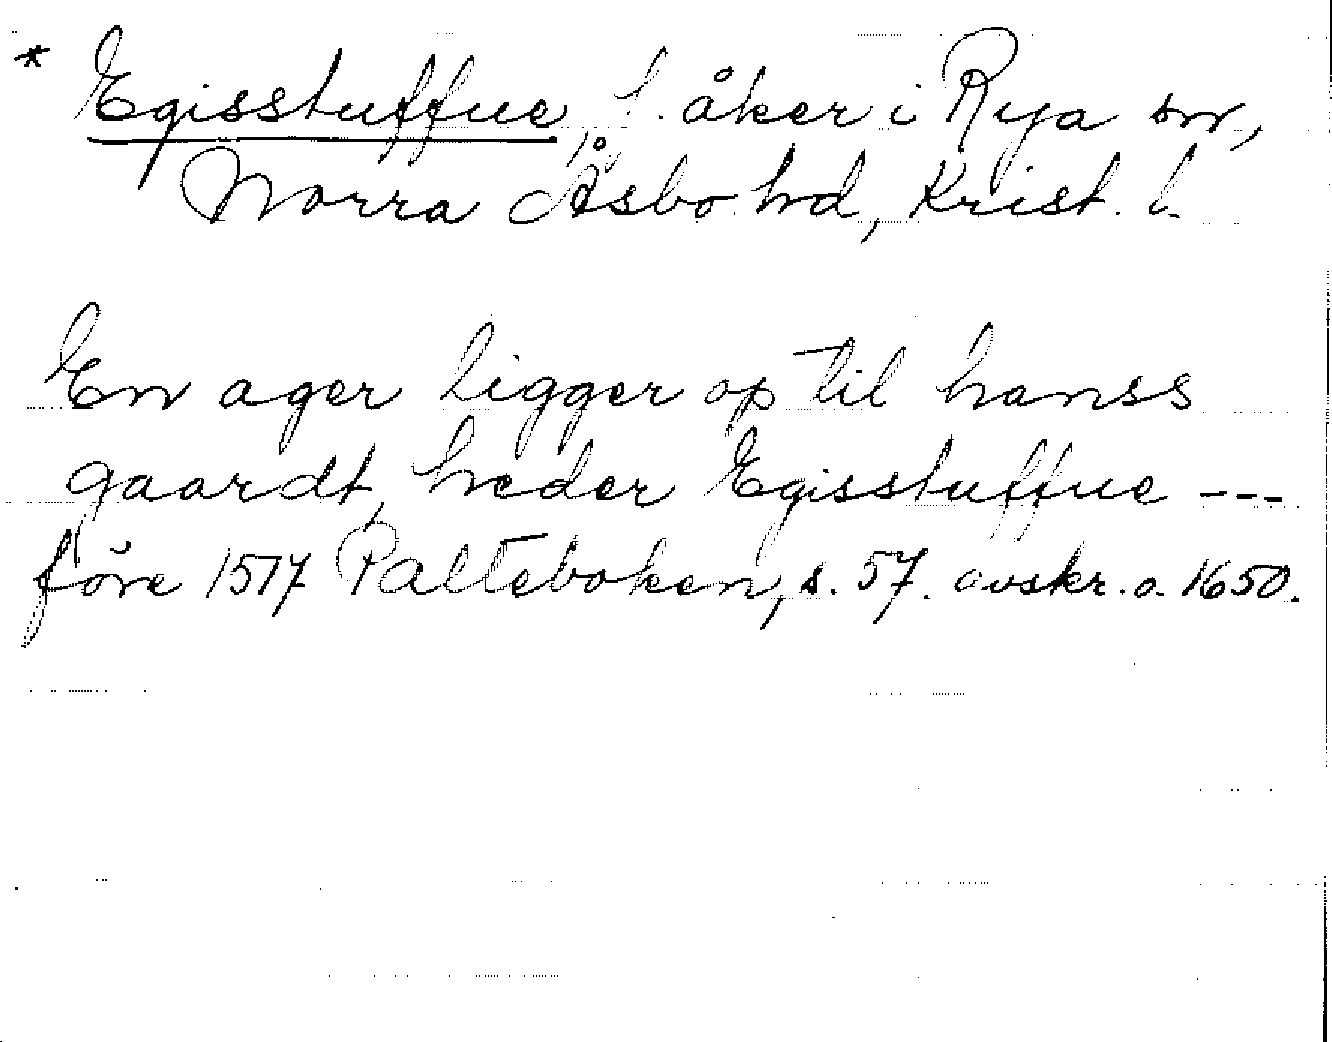 * Egisstuffue, f. åker i Rya sn,
Norra Åsbo hd, Krist. l.
En ager ligger op til hanss
gaardt, heder Egisstuffue ---
före 1517 Palteboken, s. 57. avskr. o. 1650.